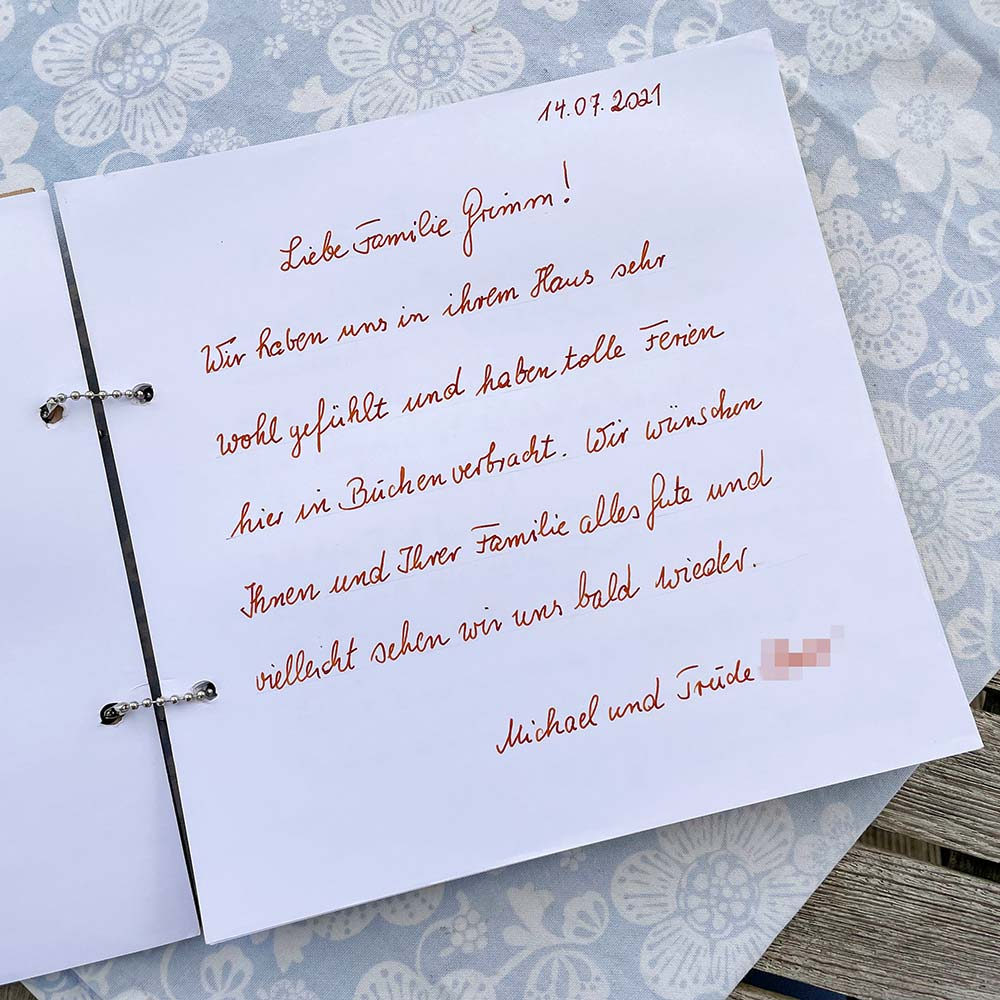 14.07.2021
Liebe Familie Grimm!
Wir haben uns in ihrem Haus sehr
wohl gefühlt und haben tolle Ferien
hier in Büchen verbracht. Wir wünschen
Ihnen und Ihrer Familie alles Gute und
vielleicht sehen wir uns bald wieder.
Michael und Trude